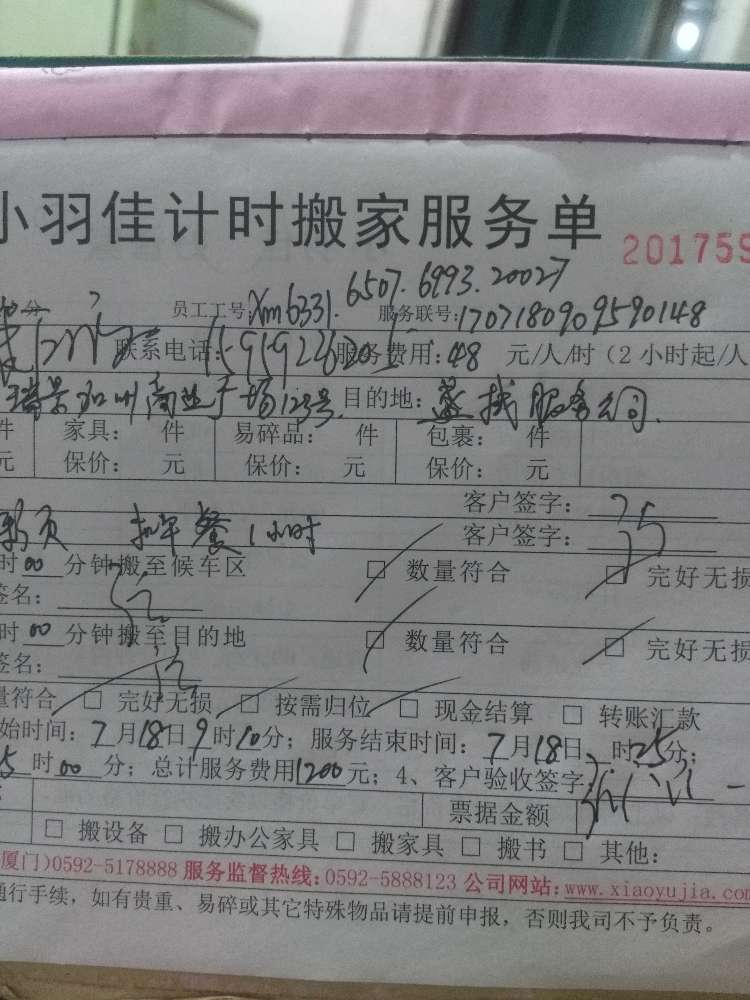 小羽佳计时搬家服务单 201759
分 员工工号: Xm6331. 6507. 6993. 20027 服务联号: 1707180909590148
联系电话: 服务费用: 48 元/人/时（2小时起/人
瑞景加州商业广场123号 目的地: 服务公司
件 家具: 件 易碎品: 件 包裹: 件
元 保价: 元 保价: 元 保价: 元
客户签字:
扣午餐1小时 客户签字:
时00分钟搬至候车区 □ 数量符合 □ 完好无损
签名:
时00分钟搬至目的地 □ 数量符合 □ 完好无损
签名:
量符合 □ 完好无损 □ 按需归位 □ 现金结算 □ 转账汇款
始时间: 7月18日9时10分; 服务结束时间: 7月18日 时25分;
5时00分; 总计服务费用1200元; 4、客户验收签字
票据金额
□ 搬设备 □ 搬办公家具 □ 搬家具 □ 搬书 □ 其他:
厦门)0592-5178888 服务监督热线:0592-5888123 公司网站:www.xiaoyujia.com
通行手续，如有贵重、易碎或其它特殊物品请提前申报，否则我司不予负责。